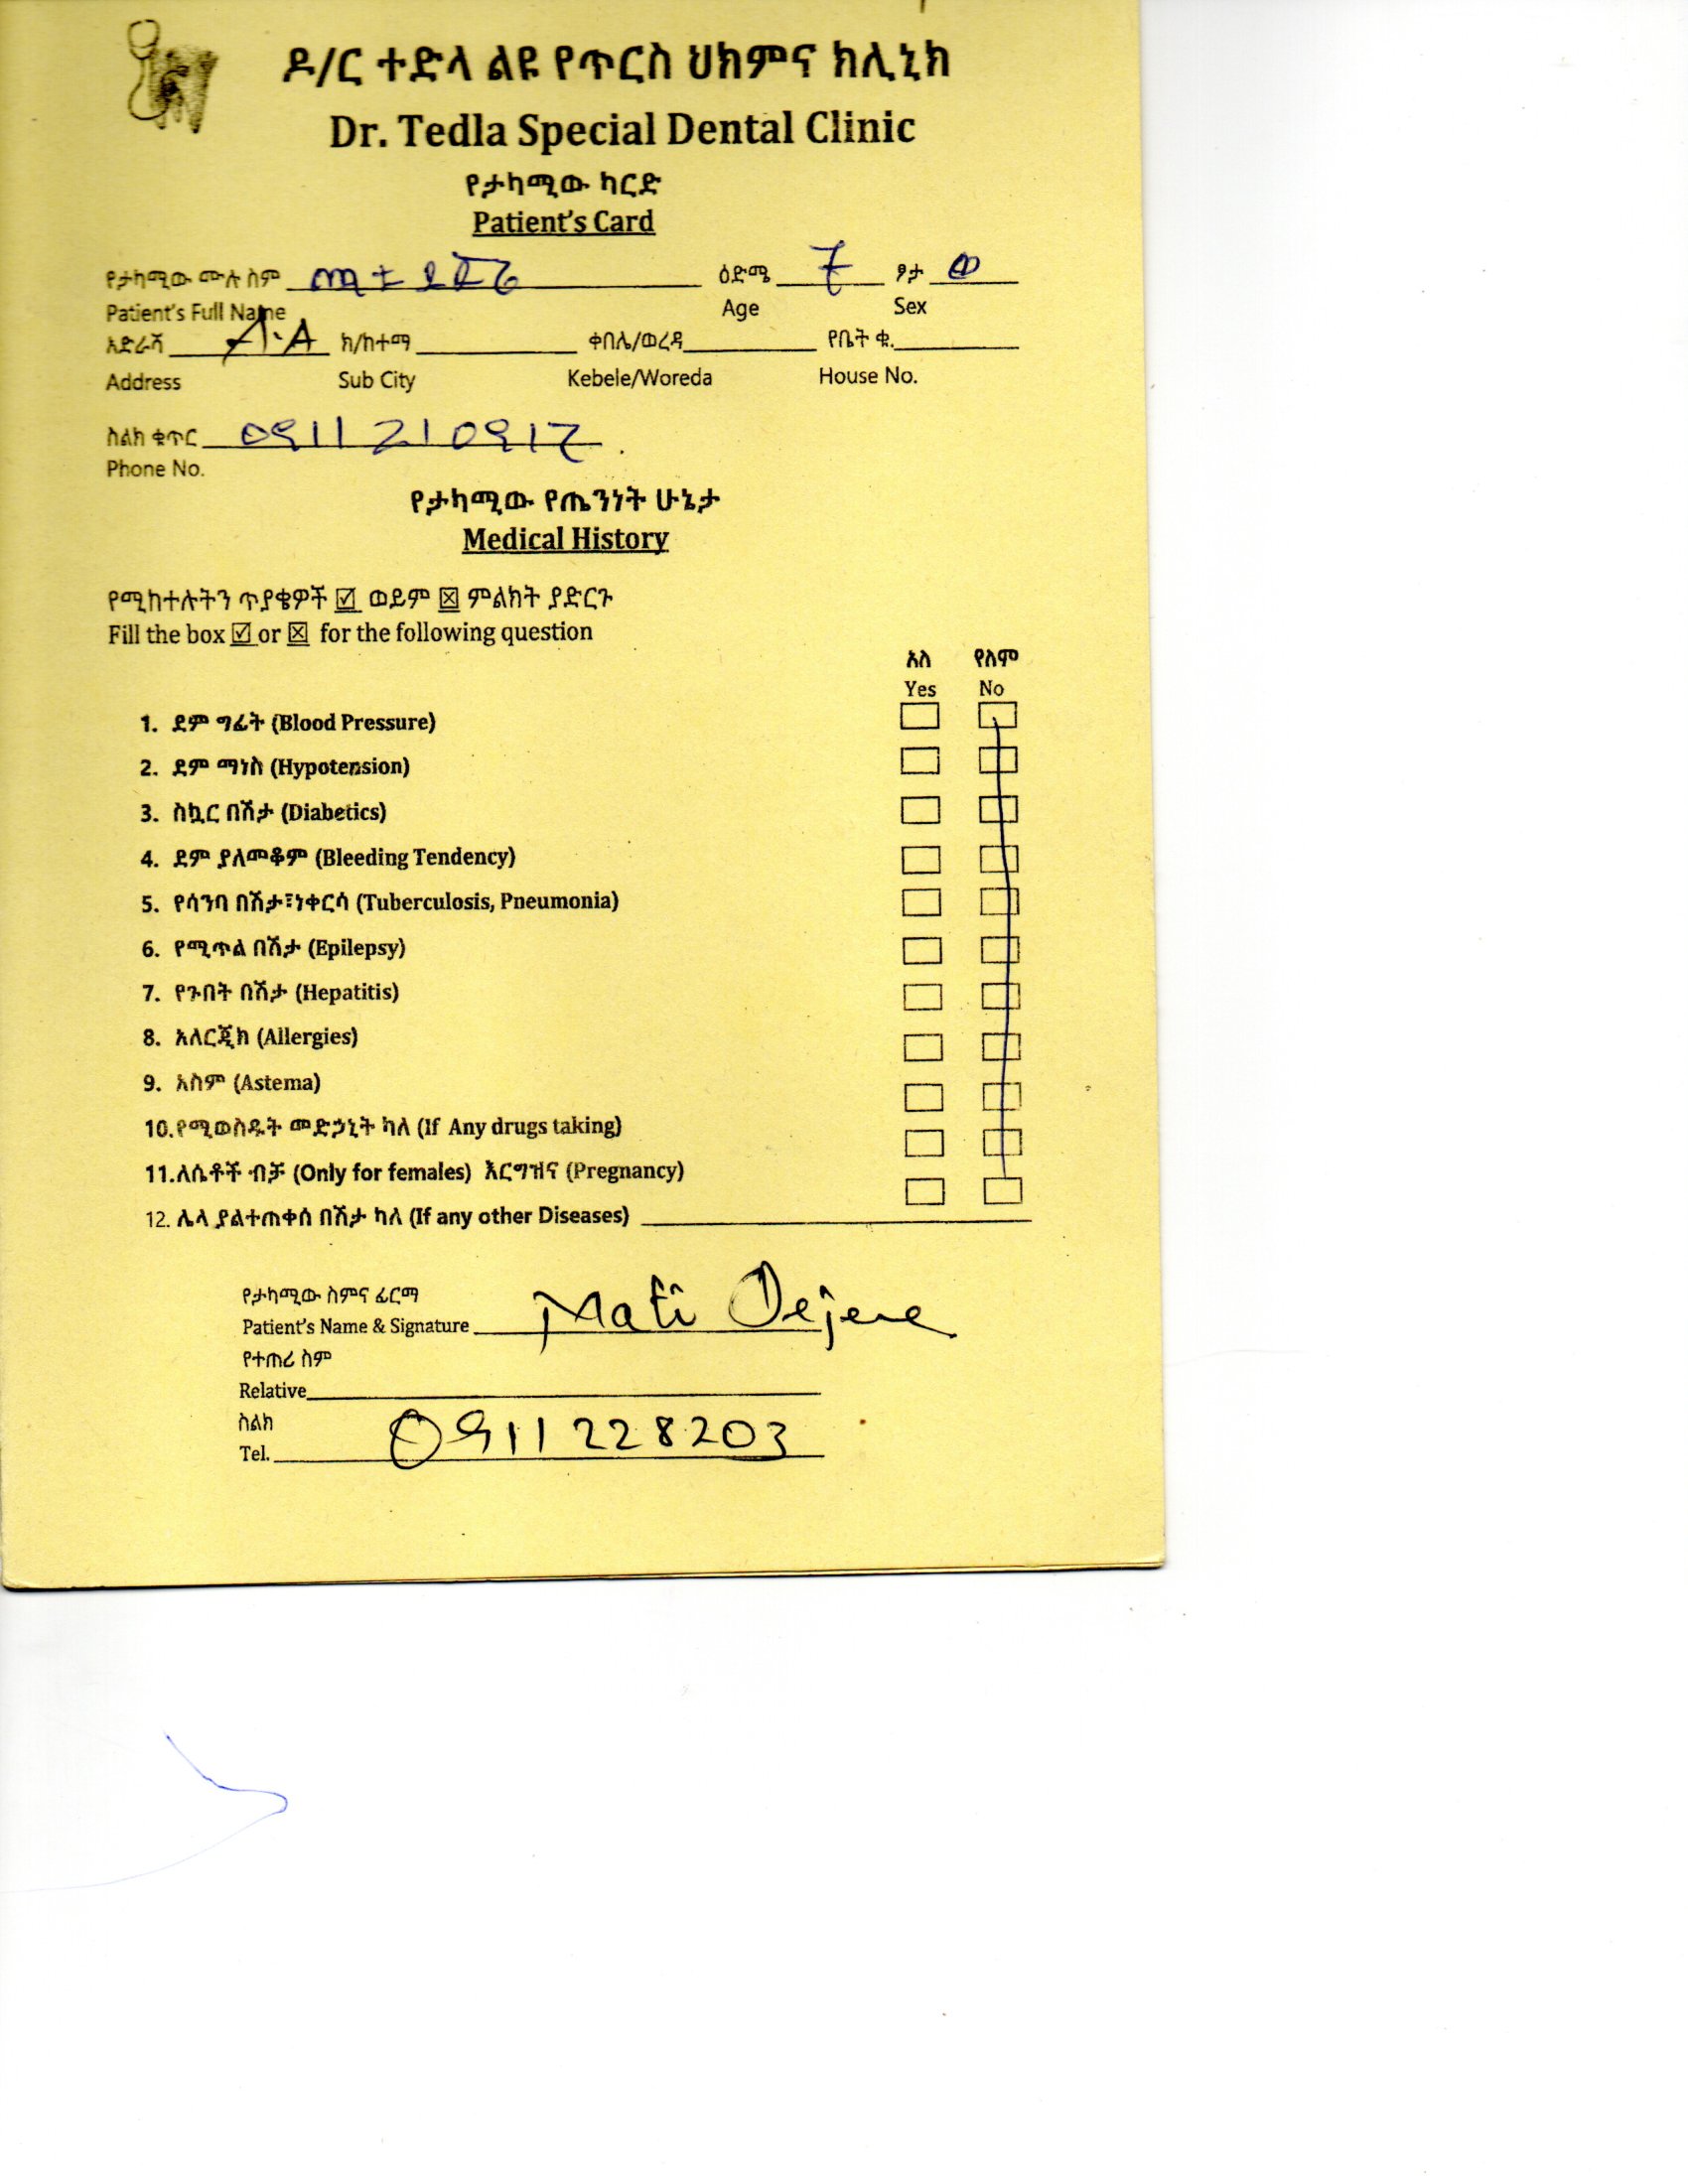 ዶ/ር ተድላ ልዩ የጥርስ ህክምና ክሊኒክ
Dr. Tedla Special Dental Clinic
የታካሚው ካርድ
Patient's Card
የታካሚው ሙሉ ስም ዕድሜ 7 ፆታ ወ
Patient's Full Name Age Sex
አድራሻ A.A ክ/ከተማ ቀበሌ/ወረዳ የቤት ቁ.
Address Sub City Kebele/Woreda House No.
ስልክ ቁጥር 0911210917
Phone No.
የታካሚው የጤንነት ሁኔታ
Medical History
የሚከተሉትን ጥያቄዎች ☑ ወይም ☒ ምልክት ያድርጉ
Fill the box ☑ or ☒ for the following question
አለ የለም
Yes No
1. ደም ግፊት (Blood Pressure)
2. ደም ማነስ (Hypotension)
3. ስኳር በሽታ (Diabetics)
4. ደም ያለመቆም (Bleeding Tendency)
5. የሳንባ በሽታ፣ነቀርሳ (Tuberculosis, Pneumonia)
6. የሚጥል በሽታ (Epilepsy)
7. የጉበት በሽታ (Hepatitis)
8. አለርጂክ (Allergies)
9. አስም (Astema)
10.የሚወስዱት መድኃኒት ካለ (If Any drugs taking)
11.ለሴቶች ብቻ (Only for females) እርግዝና (Pregnancy)
12. ሌላ ያልተጠቀሰ በሽታ ካለ (If any other Diseases)
የታካሚው ስምና ፊርማ
Patient's Name & Signature Mati Dejene
የተጠሪ ስም
Relative
ስልክ
Tel. 0911228203